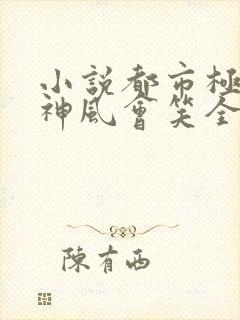 小說都市極
神風會笑全
陳有西